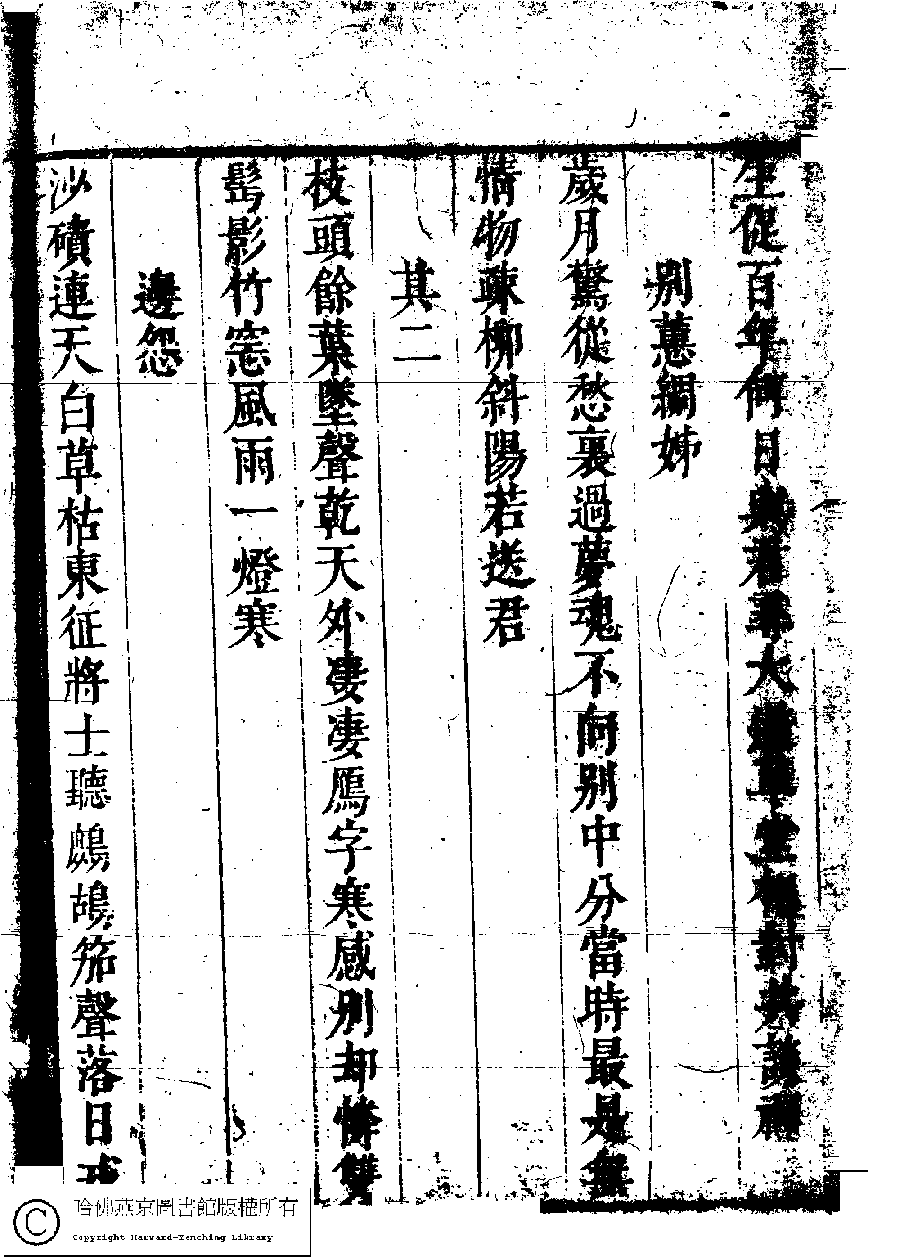 生促百年何日與君大草堂相對共談
別蕙綢姊
歲月驚從愁裏過夢魂不向別中分當時最是無
情物疎柳斜陽若送君
其二
枝頭餘葉墜聲乾天外凄凄鴈字寒感別却憐雙
髩影竹窓風雨一燈寒
邊怨
沙磧連天白草枯東征將士聽鷓鴣笳聲落日
哈佛燕京圖書館版權所有
Copyright Harvard-Yenching Library